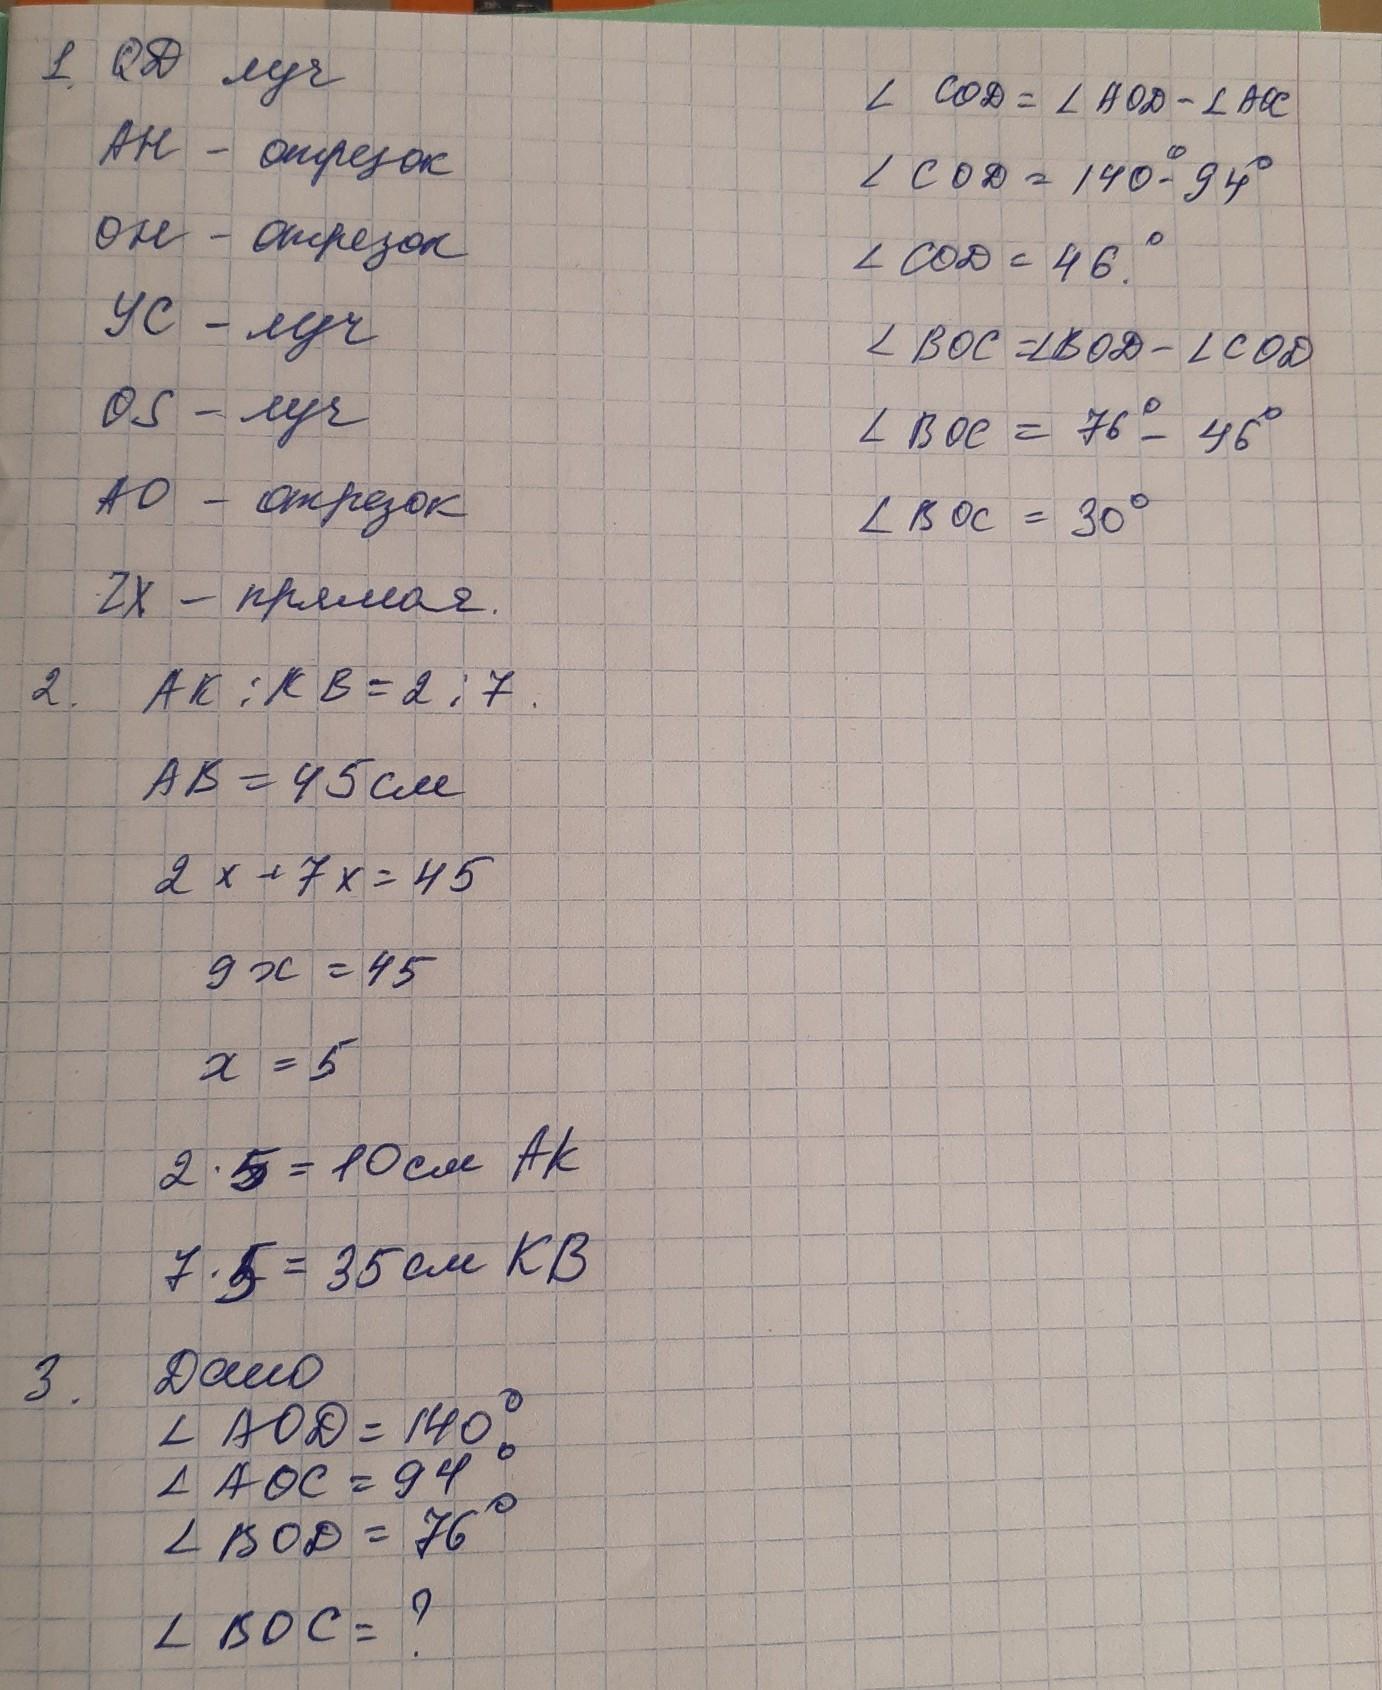 1. QD луч
AH - отрезок
OH - отрезок
YC - луч
OS - луч
AO - отрезок
ZX - прямая.
2. AK : KB = 2 : 7.
AB = 45 см
2x + 7x = 45
9x = 45
x = 5
2 · 5 = 10 см AK
7 · 5 = 35 см KB
3. Дано
∠ AOD = 140°
∠ AOC = 94°
∠ BOD = 76°
∠ BOC = ?
∠ COD = ∠ AOD - ∠ AOC
∠ COD = 140° - 94°
∠ COD = 46.°
∠ BOC = ∠BOD - ∠COD
∠ BOC = 76° - 46°
∠ BOC = 30°